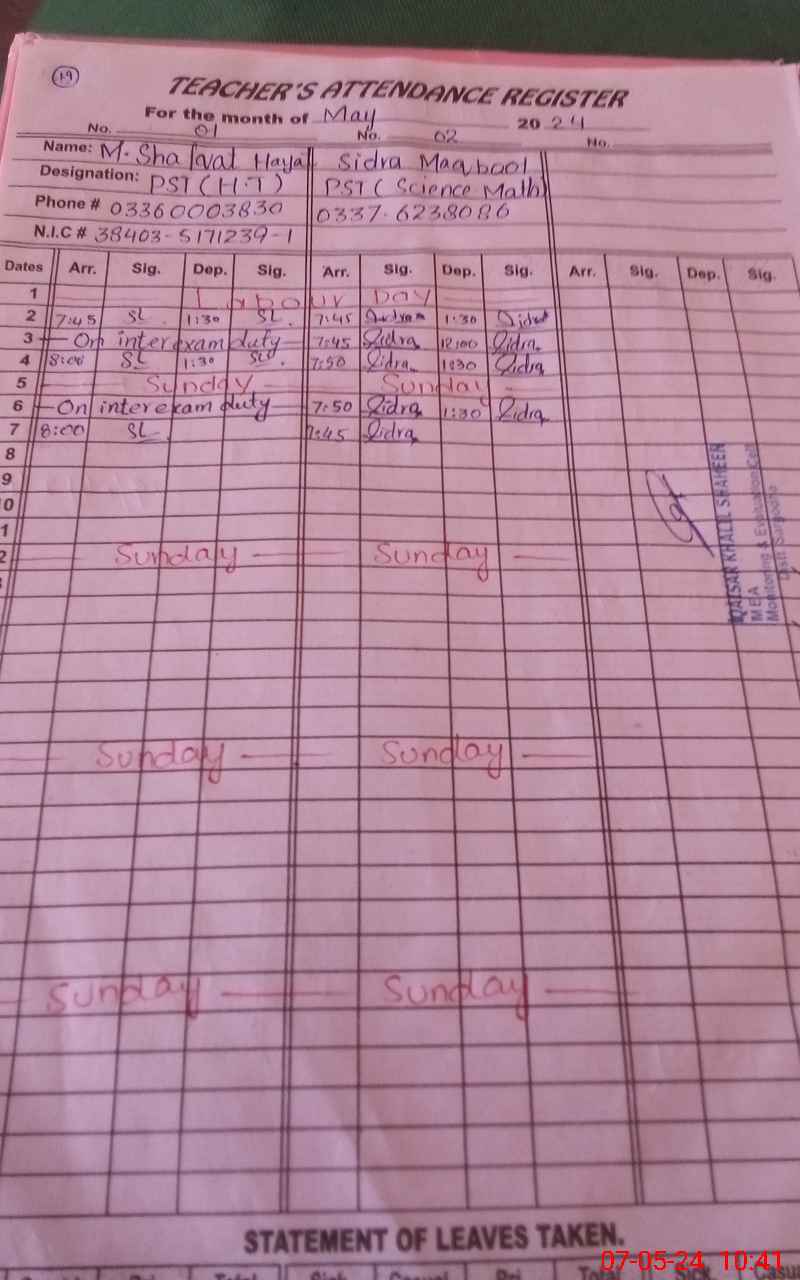 19
TEACHER'S ATTENDANCE REGISTER
For the month of May 2024
No. 01 No. 02 No.
Name: M. Shafqat Hayat Sidra Maqbool
Designation: PST (H.T) PST (Science Math)
Phone # 03360003830 0337-6238086
N.I.C # 38403-5171239-1
Dates Arr. Sig. Dep. Sig. Arr. Sig. Dep. Sig. Arr. Sig. Dep. Sig.
1 Labour Day
2 7:45 SL 1:30 SL 7:45 Sidra 1:30 Sidra
3 On inter exam duty 7:45 Sidra 12:00 Sidra
4 8:00 SL 1:30 SL 7:50 Sidra 1:30 Sidra
5 Sunday Sunday
6 On inter exam duty 7:50 Sidra 1:30 Sidra
7 8:00 SL 7:45 Sidra
8
9
0
1
2 Sunday Sunday
QAISAR KHALIL SHAHEEN
MEA
Monitoring & Evaluation Cell
Distt. Sargodha
Sunday Sunday
Sunday Sunday
STATEMENT OF LEAVES TAKEN.
07-05-24 10:41